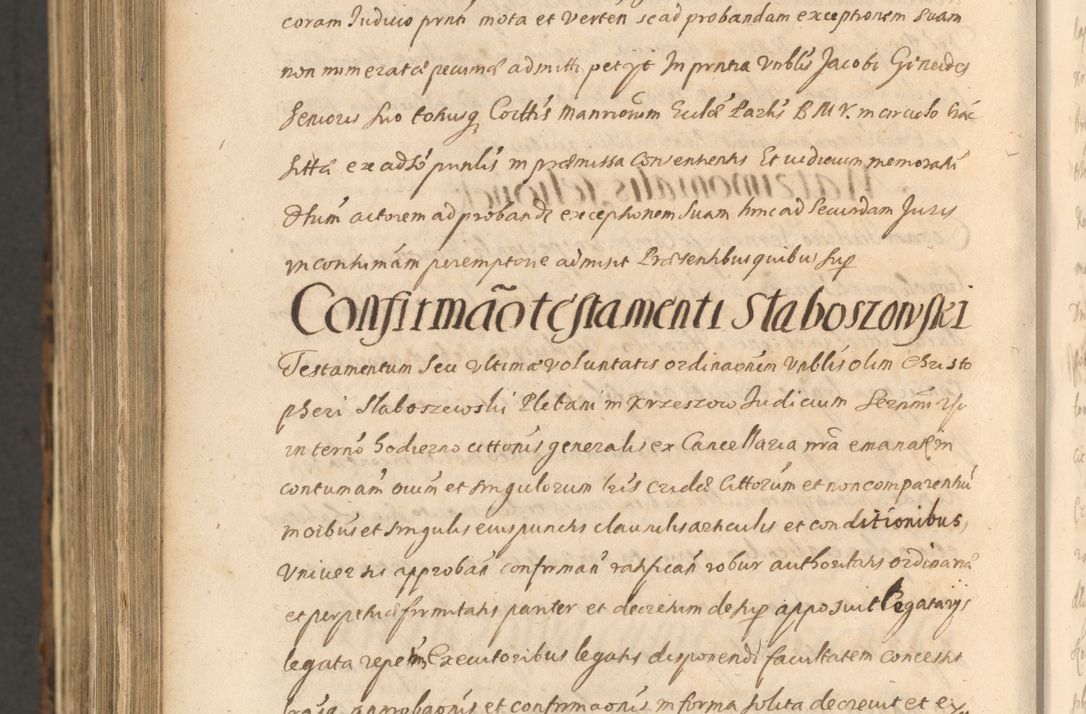 coram Judicio prnti mota et verten se ad probandam exceptionem suam
non numeratæ pecuniæ admitti petijt In prntia Vnblis Jacobi
Senioris suo totiusq Coettis Manrionum Eccliæ Parlis B M V. in circulo
sittæ ex adso prntis in præmissa consentientis Et iudicium memorati
dtum actorem ad proband exceptionem suam hinc ad secundam Juris
in contumam peremptorie admisit Præsentibus quibus sup
Confirmao testamenti Słaboszowski
Testamentum seu ultimæ voluntatis ordinaonem Vnblis olim Christo
pheri Słaboszewski Plebani in Krzeszow Judicium
in terno hodierno cittonis generalis ex Cancellaria nra emanatæ in
contumam oium et singulorum cridæ Cittorum et non comparentiu
in oibus et singulis eius punctis clausulis articulis et conditionibus,
Vniversis approban confirman ratifican robur authoritatis ordinariæ
et perpetuæ firmitatis pariter et decretum desup apposuit Legatarijs
legata repetem Executoribus legatis disponendi facultatem concessit
approbaonis et confirmaonis in forma solita decrevit et ex